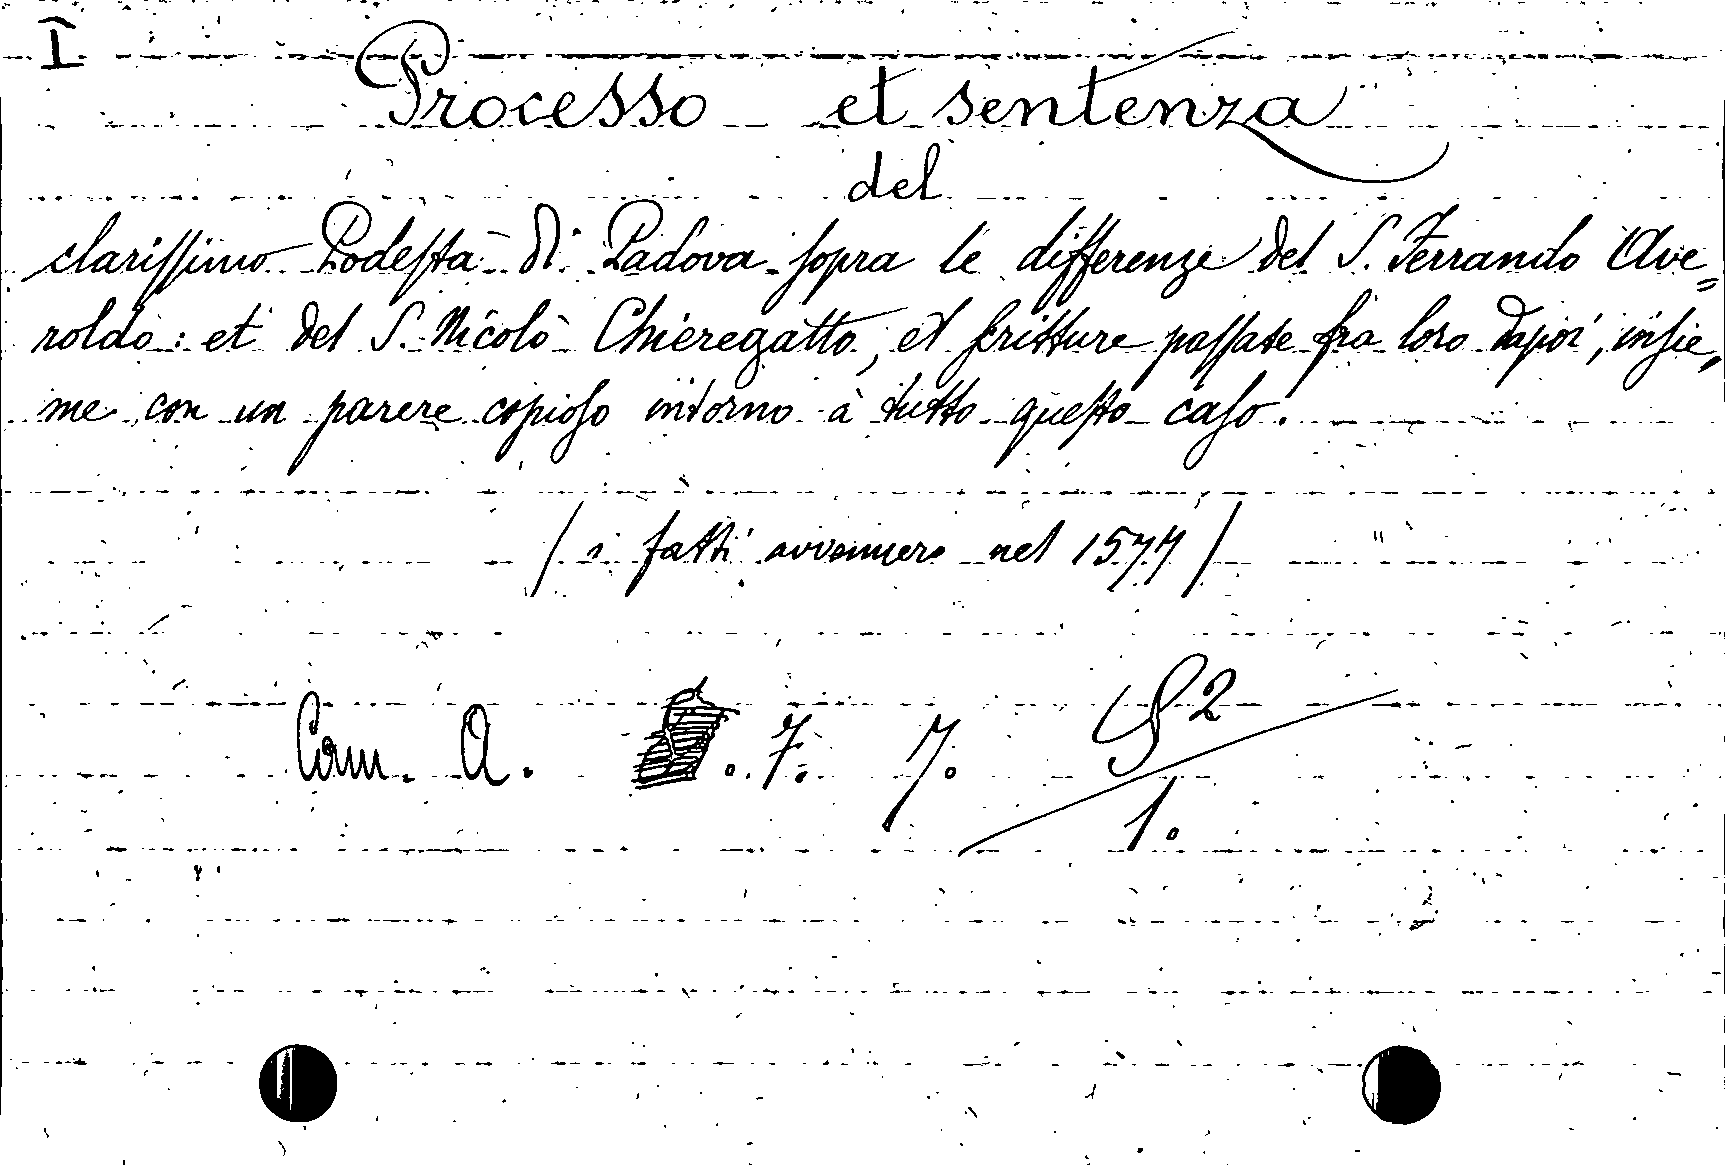 I
Processo et sentenza
del
clarissimo Podestà di Padova sopra le differenze del S. Ferrando Ave=
roldo: et del S. Nicolò Chieregatto, et scritture passate fra loro dapoi, insie=
me con un parere copioso intorno à tutto questo caso.
/ i fatti avvennero nel 1577 /
Cam. A. . 7. 7. S2
1.